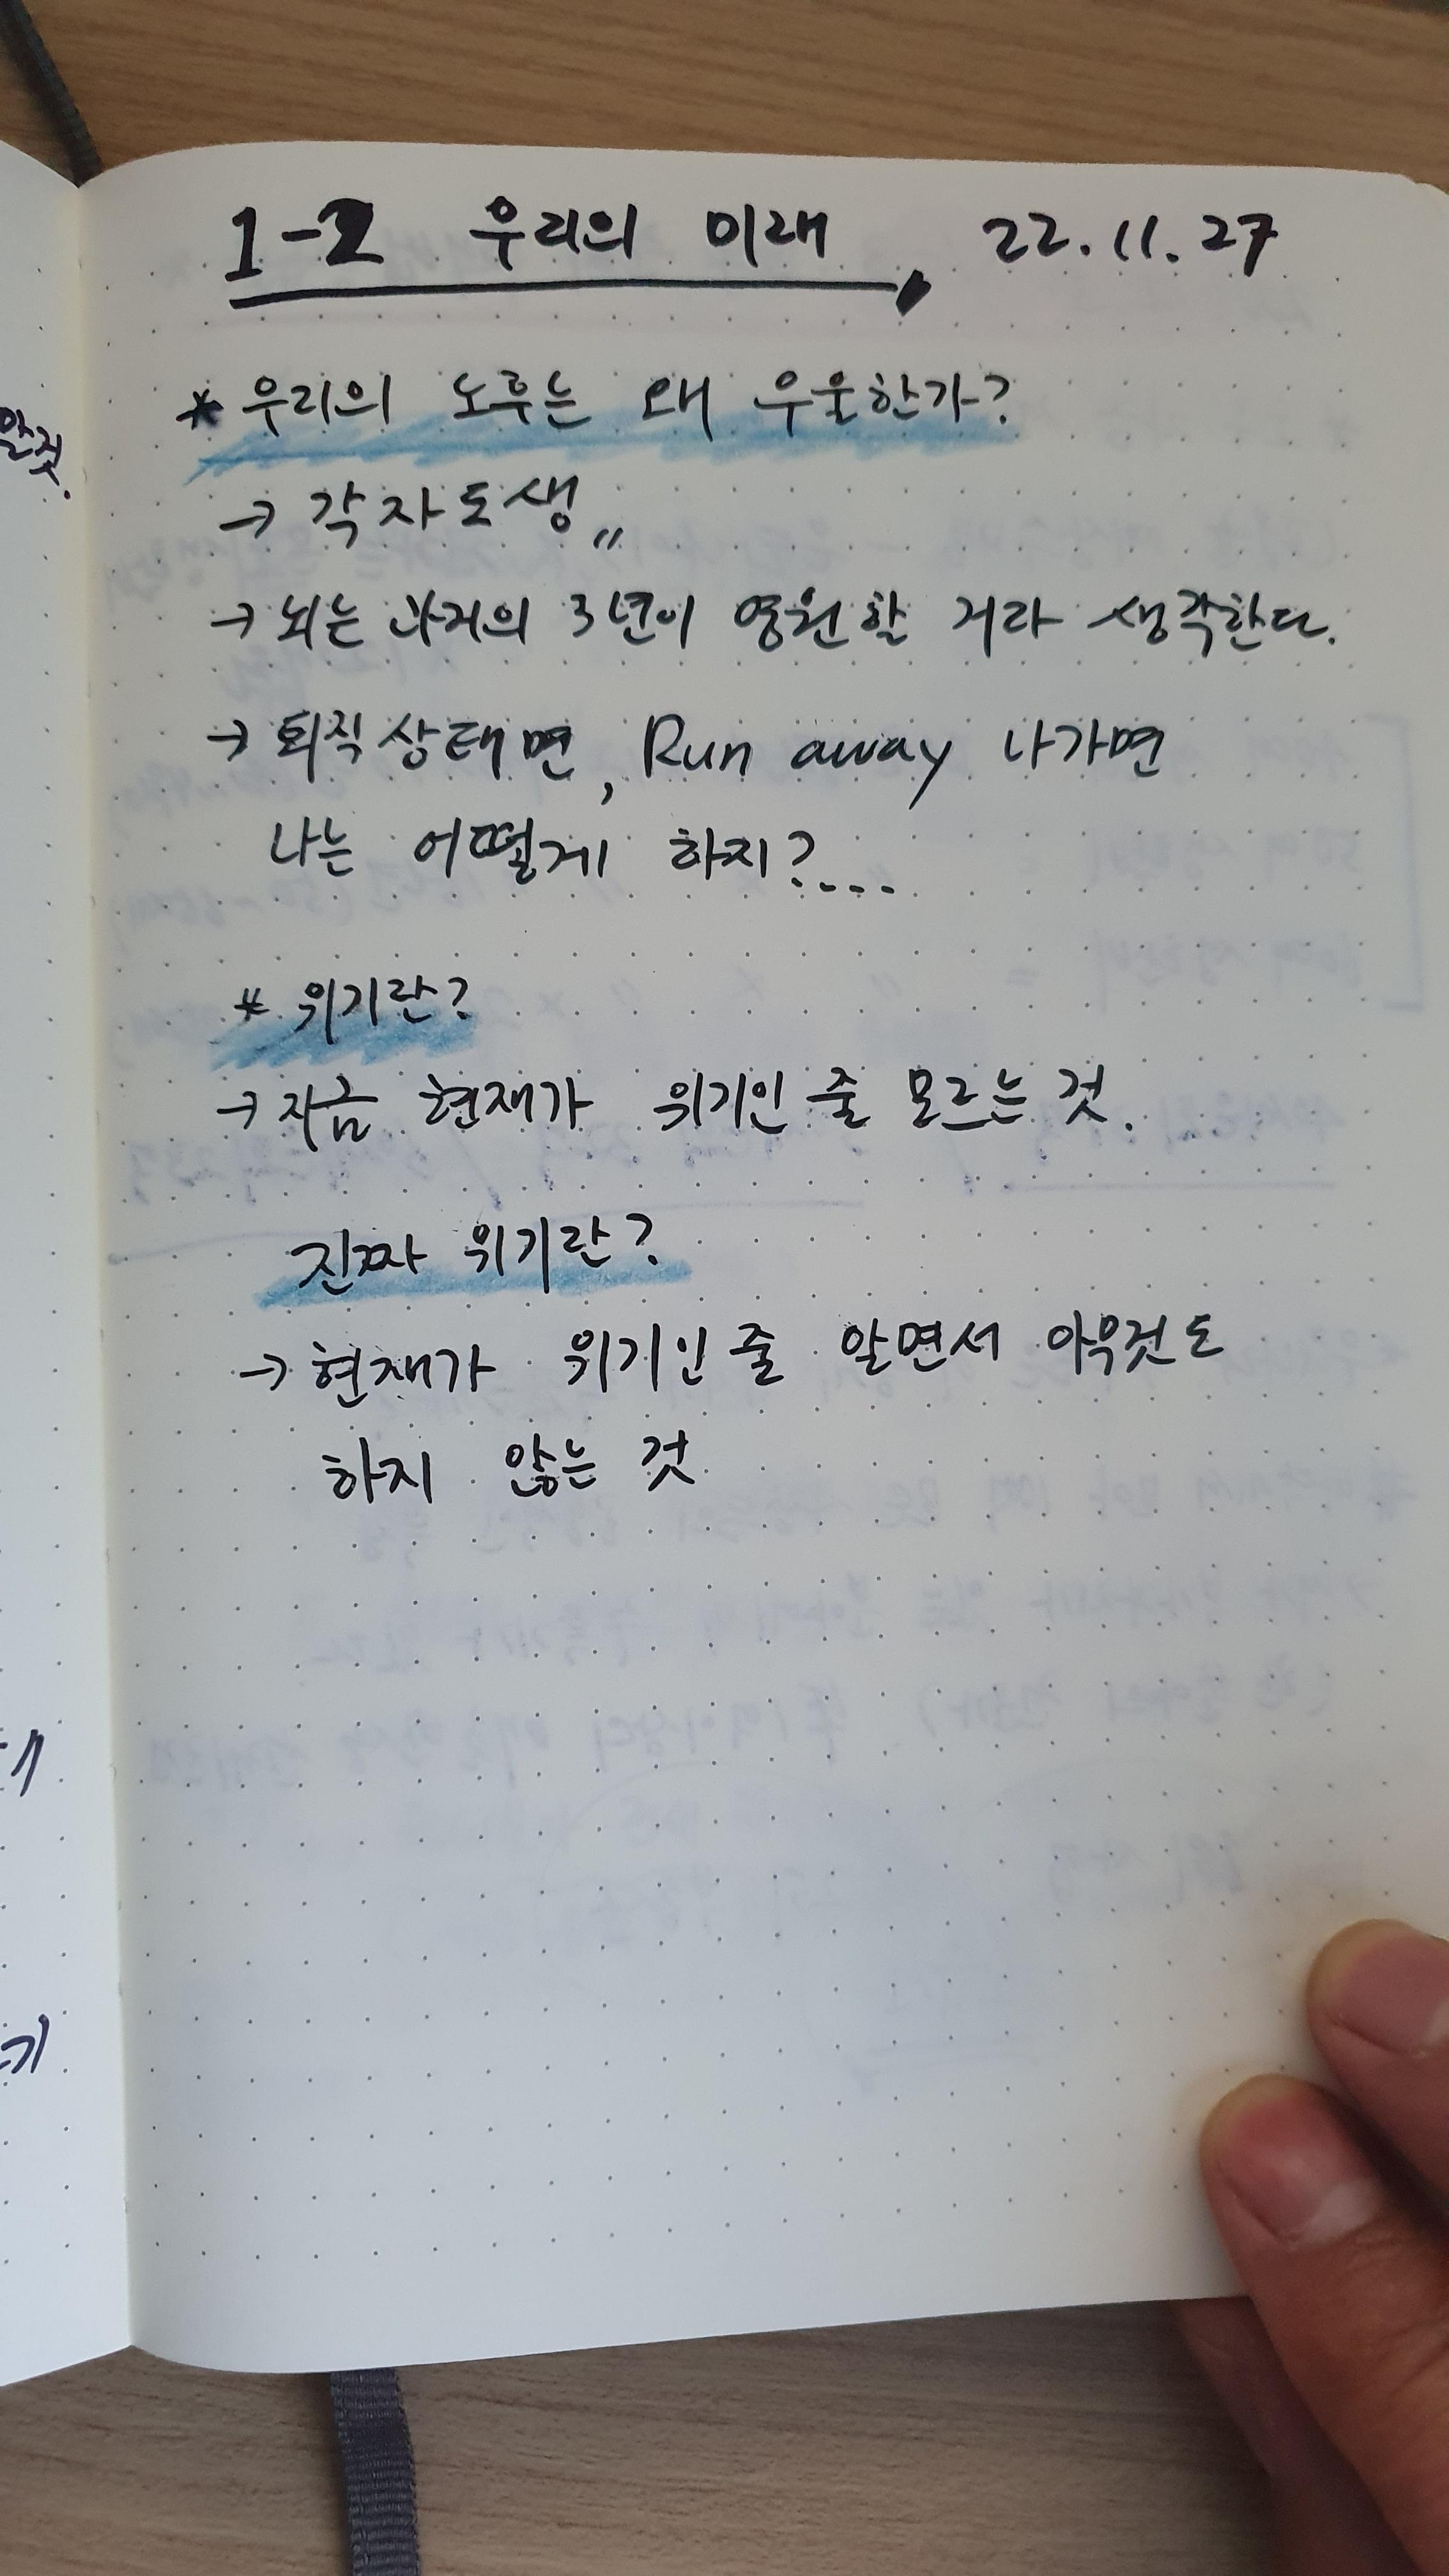 1-2 우리의 미래 22.11.27
* 우리의 노후는 왜 우울한가?
→ 각자도생〃
→ 뇌는 과거의 3년이 영원할 거라 생각한다.
→ 퇴직상태면, Run away 나가면
나는 어떻게 하지?....
* 위기란?
→ 지금 현재가 위기인 줄 모르는 것.
진짜 위기란?
→ 현재가 위기인 줄 알면서 아무것도
하지 않는 것